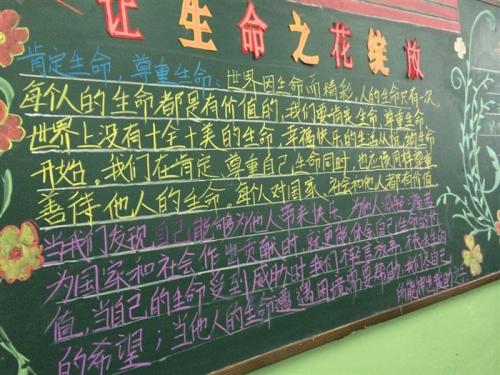 让生命之花绽放
肯定生命，尊重生命：世界因生命而精彩，人的生命只有一次，
每个人的生命都是有价值的，我们要肯定生命，尊重生命。
世界上没有十全十美的生命，幸福快乐的生活从你的生命
开始。我们在肯定、尊重自己生命同时，也应该同样尊重
善待他人的生命。每个人对国家、社会和他人都有价值
当我们发现自己能够为他人带来快乐，为他人减轻痛苦
为国家和社会作出贡献时，就更能体会自己生命的价
值，当自己的生命受到威胁时我们
的希望；当他人的生命遭遇困境需要帮助时，我们尽自己
所能伸出